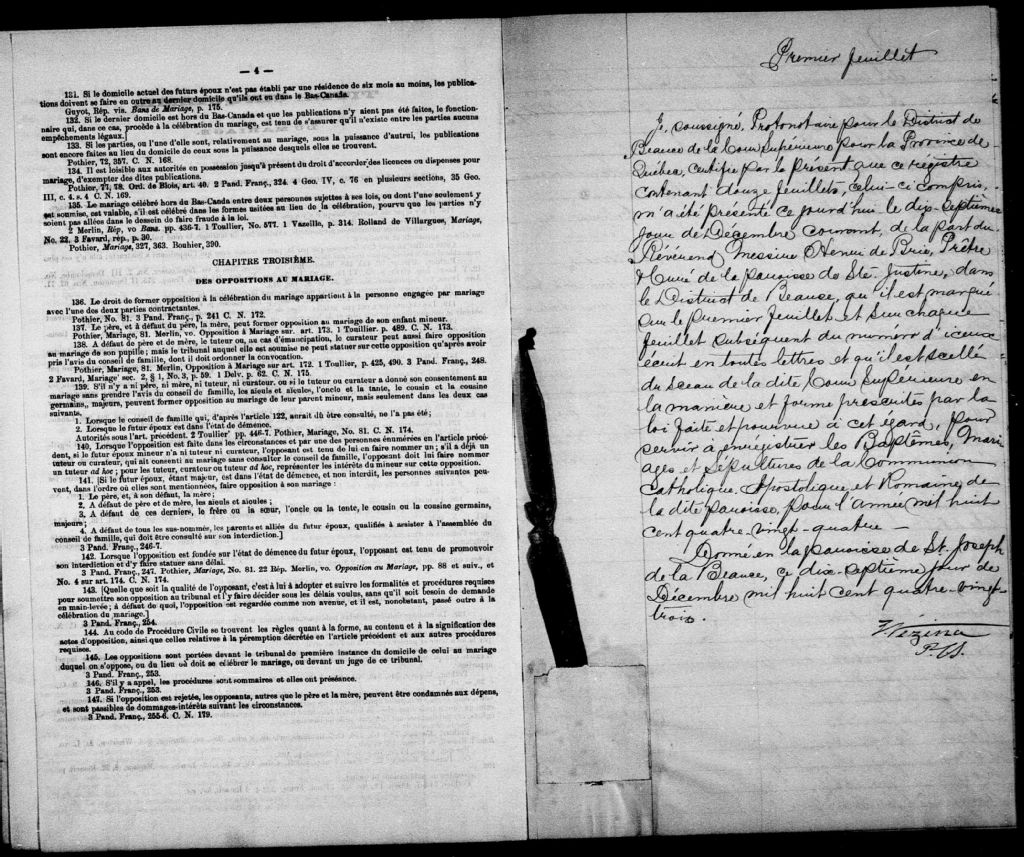 — 4 —
131. Si le domicile actuel des futurs époux n'est pas établi par une résidence de six mois au moins, les publica-
tions doivent se faire en outre au dernier domicile qu'ils ont eu dans le Bas-Canada.
Guyot, Rép. vis. Bans de Mariage, p. 175.
132. Si le dernier domicile est hors du Bas-Canada et que les publications n'y aient pas été faites, le fonction-
naire qui, dans ce cas, procède à la célébration du mariage, est tenu de s'assurer qu'il n'existe entre les parties aucuns
empêchements légaux.]
133. Si les parties, ou l'une d'elle sont, relativement au mariage, sous la puissance d'autrui, les publications
sont encore faites au lieu du domicile de ceux sous la puissance desquels elles se trouvent.
Pothier, 72, 357. C. N. 168.
134. Il est loisible aux autorités en possession jusqu'à présent du droit d'accorder des licences ou dispenses pour
mariage, d'exempter des dites publications.
Pothier, 77, 78. Ord. de Blois, art. 40. 2 Pand. Franç., 324. 4 Geo. IV, c. 76 en plusieurs sections, 35 Geo.
III, c. 4. s. 4 C. N. 169.
135. Le mariage célébré hors du Bas-Canda entre deux personnes sujettes à ses lois, ou dont l'une seulement y
est soumise, est valable, s'il est célébré dans les formes usitées au lien de la célébration, pourvu que les parties n'y
soient pas allées dans le dessein de faire fraude à la loi.
2 Merlin, Rép, vo Bans. pp. 436-7. 1 Toullier, No. 577. 1 Vazeille, p. 314. Rolland de Villargues, Mariage,
No. 22. 3 Favard, rép., p. 30.
Pothier, Mariage, 327, 363. Bouhier, 390.
CHAPITRE TROISIÈME.
DES OPPOSITIONS AU MARIAGE.
136. Le droit de former opposition à la célébration du mariage appartient à la personne engagée par mariage
avec l'une des deux parties contractantes.
Pothier, No. 81. 3 Pand. Franç., p. 241 C. N. 172.
137. Le père, et à défaut du père, la mère, peut former opposition au mariage de son enfant mineur.
Pothier, Mariage, 81. Merlin, vo. Opposition à Mariage sur. art. 173. 1 Touillier. p. 489. C. N. 173.
138. A défaut de père et de mère, le tuteur ou, au cas d'émancipation, le curateur peut aussi faire opposition
au mariage de son pupille; mais le tribunal auquel elle est soumise ne peut statuer sur cette opposition qu'après avoir
pris l'avis du conseil de famille, dont il doit ordonner la convocation.
Pothier, Mariage, 81. Merlin, Opposition à Mariage sur art. 172. 1 Toullier, p. 425, 490. 3 Pand. Franç., 248.
2 Favard, Mariage' sec. 2, § 1, No. 3, p. 59. 1 Delv. p. 62. C. N. 175.
139. S'il n'y a ni père, ni mère, ni tuteur, ni curateur, ou si le tuteur ou curateur a donné son consentement au
mariage sans prendre l'avis du conseil de famille, les aieuls et aieules, l'oncle et la tante, le cousin et la cousine
germains,, majeurs, peuvent former opposition au mariage de leur parent mineur, mais seulement dans les deux cas
suivants,
1. Lorsque le conseil de famille qui, d'après l'article 122, aurait dû être consulté, ne l'a pas été;
2. Lorsque le futur époux est dans l'état de démence.
Autorités sous l'art. précédent. 2 Touillier' pp. 446-7. Pothier, Mariage, No. 81. C. N. 174.
140. Lorsque l'opposition est faite dans les circonstances et par une des personnes énumérées en l'article précé-
dent, si le futur époux mineur n'a ni tuteur ni curateur, l'opposant est tenu de lui en faire nommer un; s'il a déjà un
tuteur ou curateur, qui ait consenti au mariage sans consulter le conseil de famille, l'opposant doit lui faire nommer
un tuteur ad hoc; pour les tuteur, curateur ou tuteur ad hoc, représenter les intérêts du mineur sur cette opposition.
141. [Si le futur époux, étant majeur, est dans l'état de démence, et non interdit, les personnes suivantes peu-
vent, dans l'ordre où elles sont mentionnées, faire opposition à son mariage:
1. Le père, et, à son défaut, la mère;
2. A défaut de père et de mère, les aieuls et aieules;
3. A défaut de ces derniers, le frère ou la sœur, l'oncle ou la tente, le cousin ou la cousine germains,
majeurs;
4. A défaut de tous les sus-nommés, les parents et alliés du futur époux, qualifiés à assister à l'assemblée du
conseil de famille, qui doit être consulté sur son interdiction.]
3 Pand. Franç., 246-7.
142. Lorsque l'opposition est fondée sur l'état de démence du futur époux, l'opposant est tenu de promouvoir
son interdiction et d'y faire statuer sans délai.
3 Pand. Franç., 247. Pothier, Mariage, No. 81. 22 Rép. Merlin, vo. Opposition au Mariage, pp. 88 et suiv., et
No. 4 sur art. 174. C. N. 174.
143. [Quelle que soit la qualité de l'opposant, c'est à lui à adopter et suivre les formalités et procédures requises
pour soumettre son opposition au tribunal et y faire décider sous les délais voulus, sans qu'il soit besoin de demande
en main-levée; à défaut de quoi, l'opposition est regardée comme non avenue, et il est, nonobstant, passé outre à la
célébration du mariage.]
3 Pand. Franç., 254.
144. Au code de Procédure Civile se trouvent les règles quant à la forme, au contenu et à la signification des
actes d'opposition, ainsi que celles relatives à la péremption décrétée en l'article précédent et aux autres procédures
requises.
145. Les oppositions sont portées devant le tribunal de premiere instance du domicile de celui au mariage
duquel on s'oppose, ou du lieu où doit se célébrer le mariage, ou devant un juge de ce tribunal.
3 Pand. Franç., 253.
146. S'il y a appel, les procédures sont sommaires et elles ont préséance.
3 Pand. Franç., 253.
147. Si l'opposition est rejetée, les opposants, autres que le père et la mère, peuvent être condamnés aux dépens,
et sont passibles de dommages-intérêts suivant les circonstances.
3 Pand. Franç., 255-6. C. N. 179.
Premier feuillet
Je, soussigné, Protonotaire pour le District de
Beauce de la Cour Supérieure pour la Province de
Québec, certifie par le présent que ce régistre
contenant douze feuillets, celui-ci compris,
m'a été présenté ce jourd'hui le dix-septième
jour de Décembre courant, de la part du
Révérend Messire Henri de Brie, Prêtre
& Curé de la paroisse de Ste. Justine, dans
le District de Beauce, qu'il est marqué
sur le premier feuillet et sur chaque
feuillet subséquent du numéro d'iceux
écrit en toutes lettres et qu'il est scellé
du sceau de la dite Cour Supérieure en
la manière et forme prescrites par la
loi faite et pourvue à cet égard, pour
servir à enrégistrer les Baptêmes, Mari
ages et Sépultures de la Communion
Catholique Apostolique et Romaine de
la dite paroisse, pour l'Année mil huit
cent quatre-vingt-quatre —
Donné en la paroisse de St. Joseph
de la Beauce, ce dix-septième jour de
Décembre mil huit cent quatre-vingt-
trois.
Vézina
P. C. S.